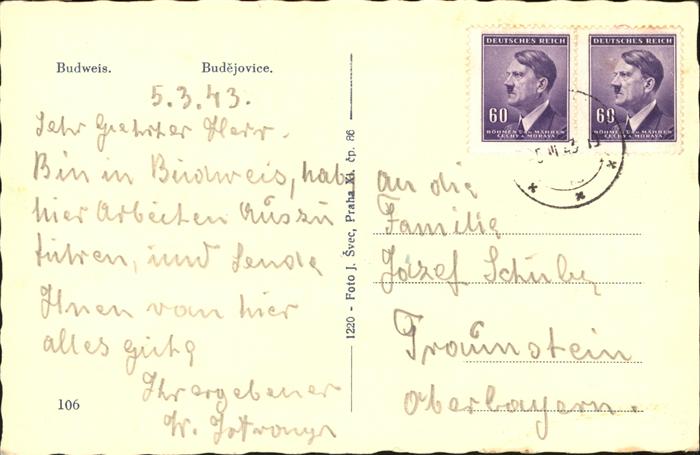 Budweis.
Budějovice.
5.3.43.
Sehr Geehrter Herr.
Bin in Budweis, hab
hier Arbeiten Auszu
führen, und Sende
Ihnen von hier
alles gute
Ihr ergebener
W.
106
1220 - Foto J. Švec, Praha XI. čp. 86
DEUTSCHES REICH
60
BÖHMEN UND MÄHREN
ČECHY A MORAVA
DEUTSCHES REICH
60
BÖHMEN UND MÄHREN
ČECHY A MORAVA
an die
Familie
Josef
Traunstein
Oberbayern.